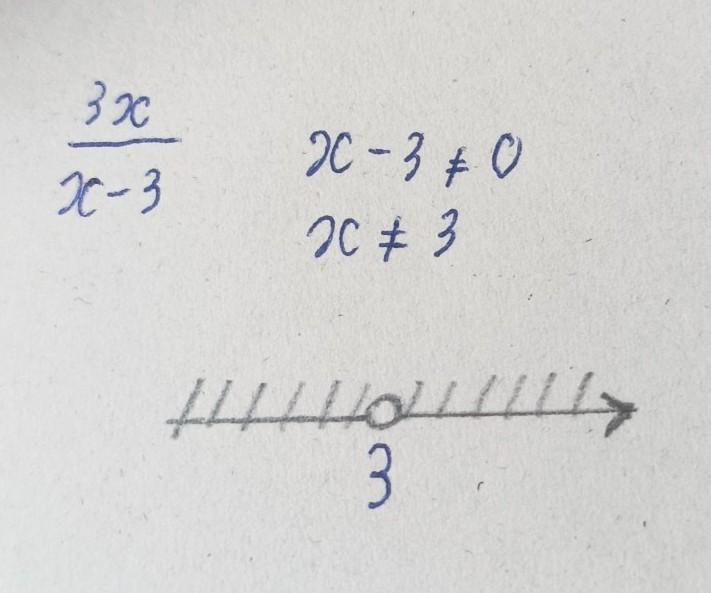 3x
x-3
x-3≠0
x≠3
3